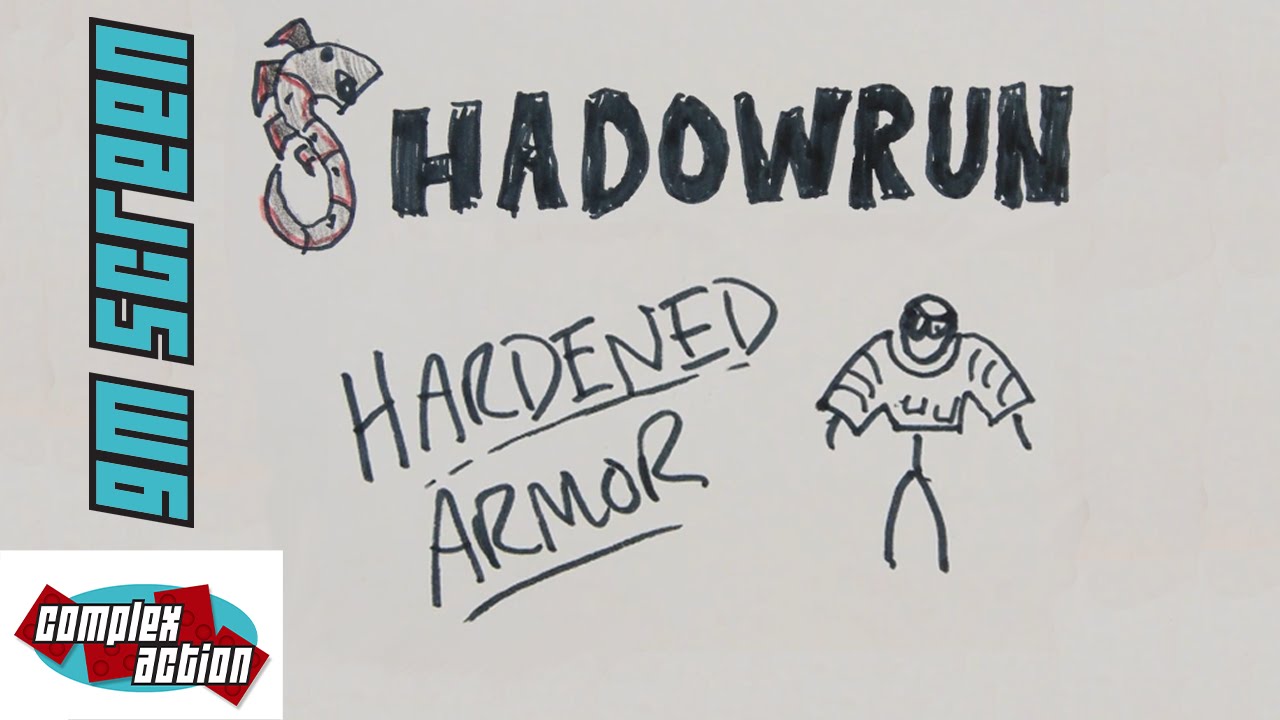 gm screen
SHADOWRUN
HARDENED
ARMOR
complex
action